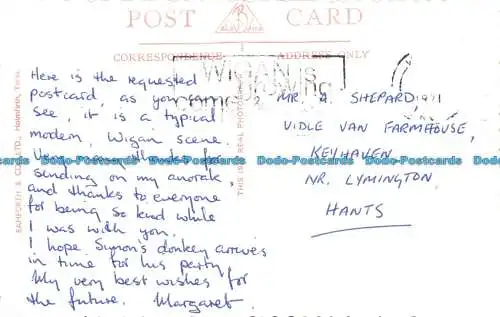 POST CARD
CORRESPONDENCE
ADDRESS ONLY
WIGAN is
Here is the requested
postcard, as you can
see, it is a typical
modern, Wigan scene.
Very many thanks for
sending on my anorak,
and thanks to everyone
for being so kind while
I was with you.
I hope Symon's donkey arrives
in time for his party
My very best wishes for
the future. Margaret.
BAMFORTH & CO., LTD., Holmfirth, Yorks.
THIS IS A REAL PHOTOGRAPH
MR. A. SHEPARD
VIDLE VAN FARMHOUSE,
KEYHAVEN
NR. LYMINGTON
HANTS
Dodo-Postcards Dodo-Postcards Dodo-Postcards Dodo-Postcards Dodo-Postcards